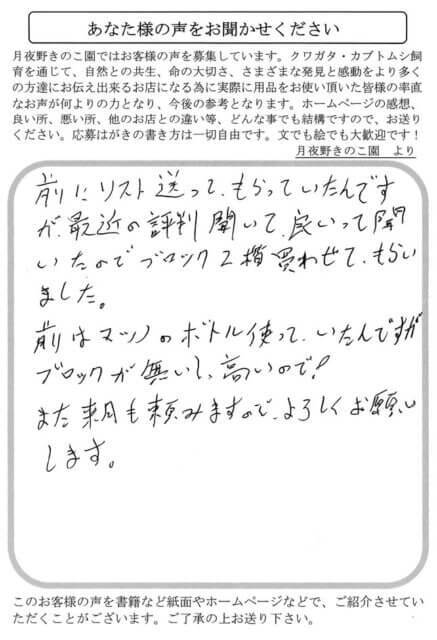 あなた様の声をお聞かせください
月夜野きのこ園ではお客様の声を募集しています。クワガタ・カブトムシ飼
育を通じて、自然との共生、命の大切さ、さまざまな発見と感動をより多く
の方達にお伝え出来るお店になる為に実際に用品をお使い頂いた皆様の率直
なお声が何よりの力となり、今後の参考となります。ホームページの感想、
良い所、悪い所、他のお店との違い等、どんな事でも結構ですので、お送り
ください。応募はがきの書き方は一切自由です。文でも絵でも大歓迎です！
月夜野きのこ園　より
前にリスト送って、もらっていたんです
が、最近の評判聞いて、良いって聞
いたのでブロック2箱買わせて、もらい
ました。
前はマツノのボトル使って、いたんですが
ブロックが無いし、高いので！
また来月も頼みますので、よろしくお願い
します。
このお客様の声を書籍など紙面やホームページなどで、ご紹介させてい
ただくことがございます。ご了承の上お送り下さい。